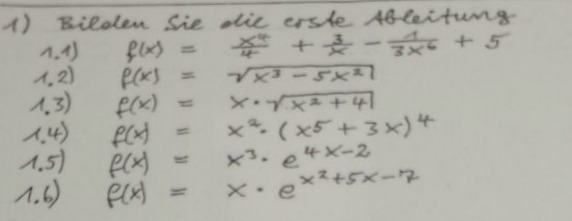 1) Bilden Sie die erste Ableitung
1.1) f(x) = x⁴/4 + 3/x - 1/(3x⁶) + 5
1.2) f(x) = √(x³ - 5x²)
1.3) f(x) = x · √(x² + 4)
1.4) f(x) = x² · (x⁵ + 3x)⁴
1.5) f(x) = x³ · e^(4x-2)
1.6) f(x) = x · e^(x²+5x-7)